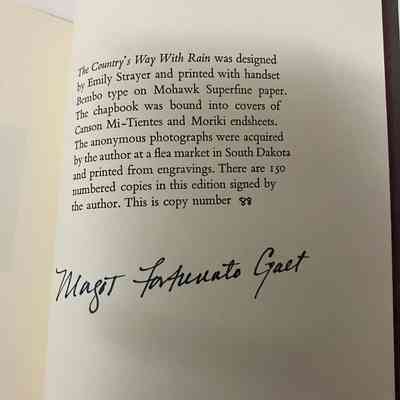 The Country's Way With Rain was designed
by Emily Strayer and printed with handset
Bembo type on Mohawk Superfine paper.
The chapbook was bound into covers of
Canson Mi-Tientes and Moriki endsheets.
The anonymous photographs were acquired
by the author at a flea market in South Dakota
and printed from engravings. There are 150
numbered copies in this edition signed by
the author. This is copy number 88
Magot Fortunato Gaet